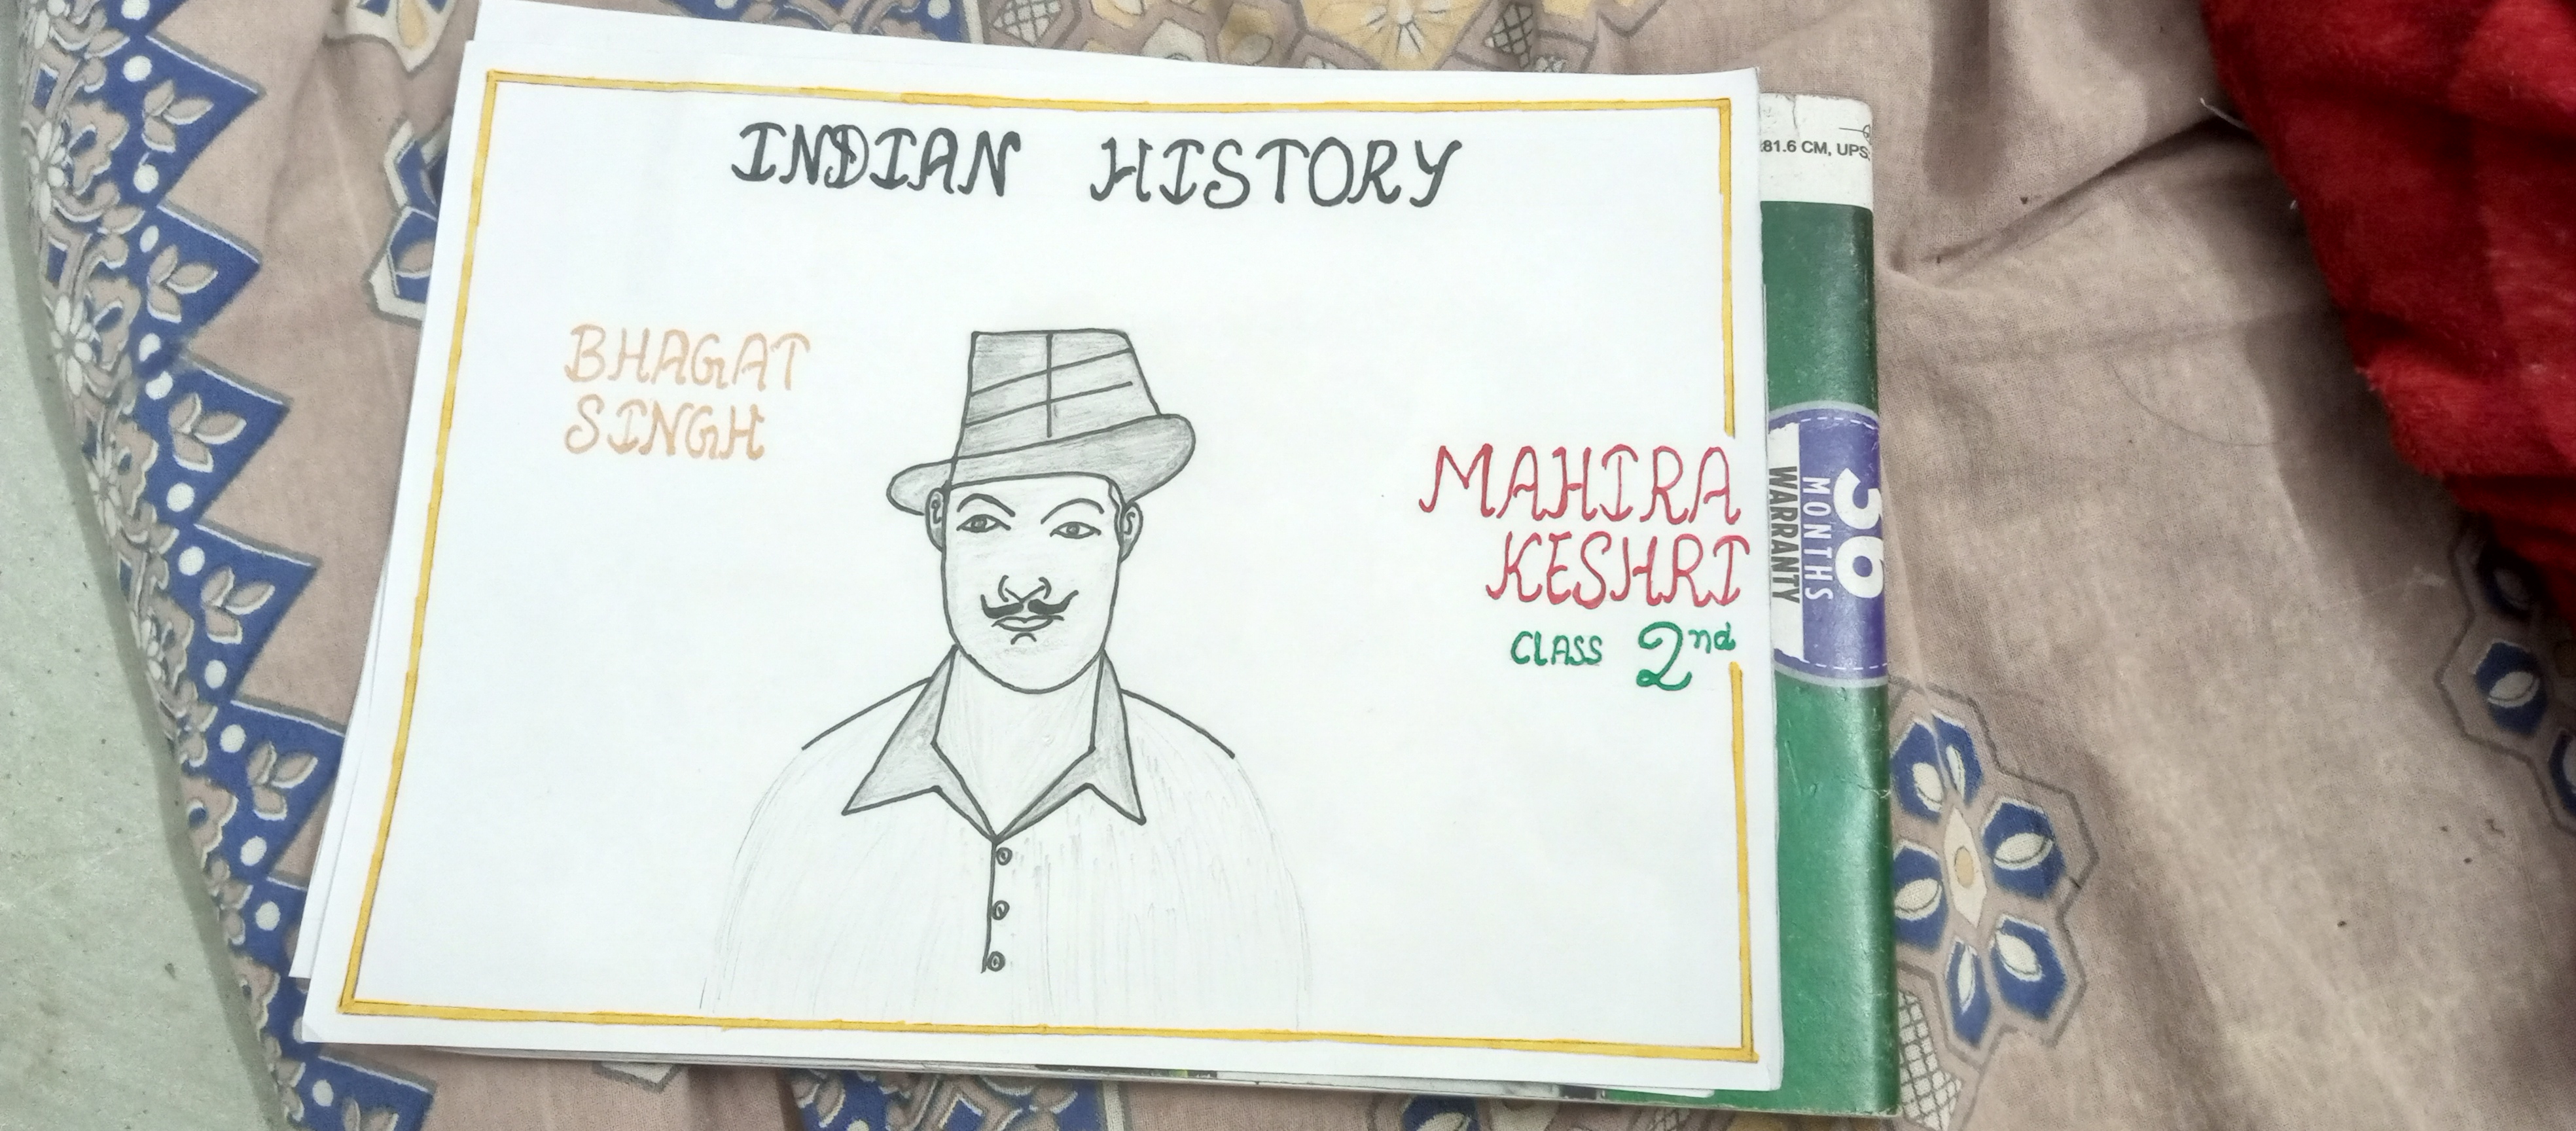 INDIAN HISTORY
BHAGAT
SINGH
MAHIRA
KESHRI
CLASS 2nd
81.6 CM, UPS
36
MONTHS
WARRANTY